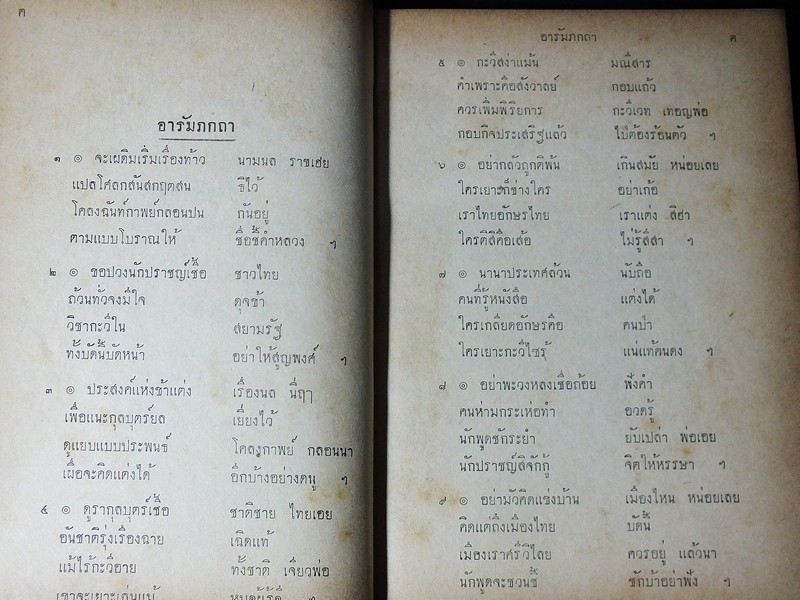 ฅ
อารัมภกถา
๑ ๏ จะเผดิมเริ่มเรื่องท้าว นามนล ราชเฮย
แปลโศลกสันสกฤตสน ธิไว้
โคลงฉันท์กาพย์กลอนปน กันอยู่
ตามแบบโบราณให้ ชื่อชี้คำหลวง ฯ
๒ ๏ ขอปวงนักปราชญ์เชื้อ ชาวไทย
ถ้วนทั่วจงมีใจ ดุจข้า
วิชากะวีใน สยามรัฐ
ทั้งบัดนี้บัดหน้า อย่าให้สูญพงศ์ ฯ
๓ ๏ ประสงค์แห่งข้าแต่ง เรื่องนล นี้ฤๅ
เพื่อแนะกุลบุตร์ยล เยี่ยงไว้
ดูแยบแบบประพนธ์ โคลงกาพย์ กลอนนา
เผื่อจะคิดแต่งได้ อีกบ้างอย่างตนู ฯ
๔ ๏ ดูรากุลบุตร์เชื้อ ชาติชาย ไทยเอย
อันชาติรุ่งเรืองฉาย เฉิดแท้
แม้ไร้กะวีอาย ทั้งชาติ เจียวพ่อ
เขาจะเยาะเล่นแม้
อารัมภกถา ค
๕ ๏ กะวีสง่าแม้น มณีสาร
คำเพราะคือสังวาลย์ กอบแก้ว
ควรเพิ่มพิริยการ กะวีเวท เทอญพ่อ
กอบกิจประเสริฐแล้ว ไป่ต้องร้อนตัว ฯ
๖ ๏ อย่ากลัวถูกติพ้น เกินสมัย หน่อยเลย
ใครเยาะก็ช่างใคร อย่าเก้อ
เราไทยอักษรไทย เราแต่ง สิฮา
ใครติสิคือเส้อ ไม่รู้สีสา ฯ
๗ ๏ นานาประเทศล้วน นับถือ
คนที่รู้หนังสือ แต่งได้
ใครเกลียดอักษรคือ คนป่า
ใครเยาะกะวีไซร้ แน่แท้คนดง ฯ
๘ ๏ อย่าพะวงหลงเชื่อถ้อย ฟังคำ
คนห่ามกระเห่อทำ อวดรู้
นักพูดชักระยำ ยับเปล่า พ่อเอย
นักปราชญ์สิจักกู้ จิตให้หรรษา ฯ
๙ ๏ อย่ามัวคิดแข่งบ้าน เมืองไหน หน่อยเลย
คิดแต่ถึงเมืองไทย บัดนี้
เมืองเราศรีวิไลย ควรอยู่ แล้วนา
นักพูดจะชวนชี้ ชักบ้าอย่าฟัง ฯ